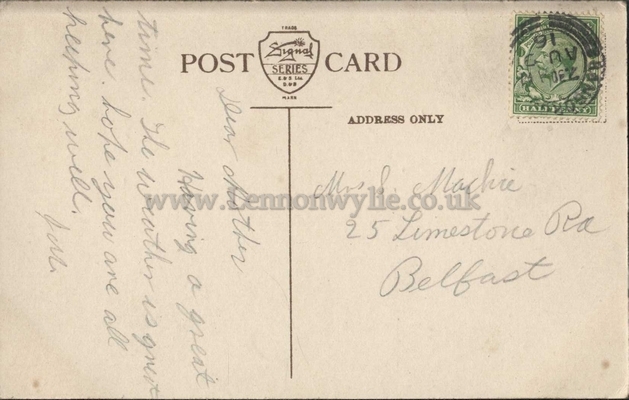 TRADE
POST CARD
Signal
SERIES
E.& S Ltd.
D.& D
MARK
ADDRESS ONLY
HALFPENNY
Dear Mother
Having a great
time. The weather is great
here. hope you are all
keeping well.
Mrs J. Mackie
25 Limestone Rd
Belfast
www.Lennonwylie.co.uk